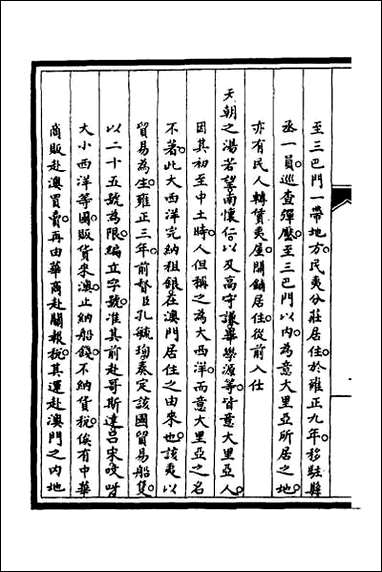 至三巴門一帶地方民夷分莊居住於雍正九年移駐縣
丞一員巡查彈壓至三巴門以內為意大里亞所居之地
亦有民人轉賃夷屋開鋪居住從前入仕
天朝之湯若望南懷仁以及高守謙畢學源等皆意大里亞人
因其初至中土時人但稱之為大西洋而意大里亞之名
不著此大西洋完納租銀在澳門居住之由來也該夷以
貿易為生雍正三年前督臣孔毓珣奏定該國貿易船隻
以二十五號為限編立字號准其前赴哥斯達呂宋咬𠺕
大小西洋等國販貨來澳止納船鈔不納貨稅俟有中華
商販赴澳買賣再由華商赴關報稅其運赴澳門之內地